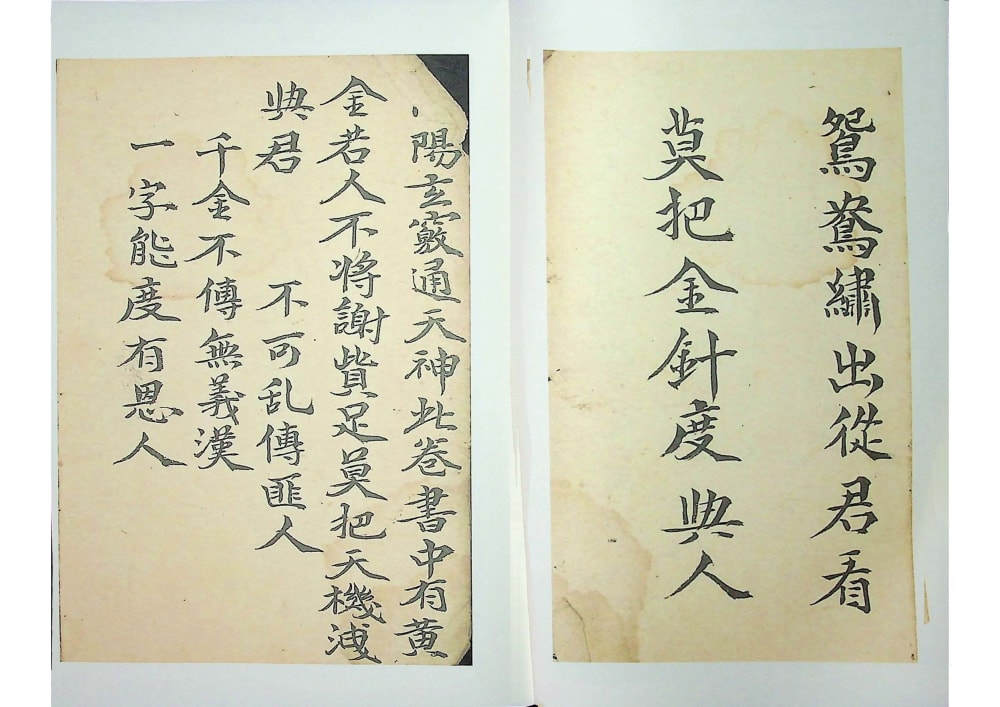 鴛鴦繡出從君看
莫把金針度與人
陽玄竅通天神此卷書中有黃
金若人不将謝貲足莫把天機洩
與君 不可乱傳匪人
千金不傳無義漢
一字能度有恩人